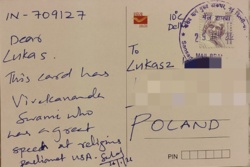 IN-709127
Dear
Lukas.
This card has
Vivekananda
Swami who
was a great
speech at religious
parliament USA.
10°C
To
Lukasz
POLAND